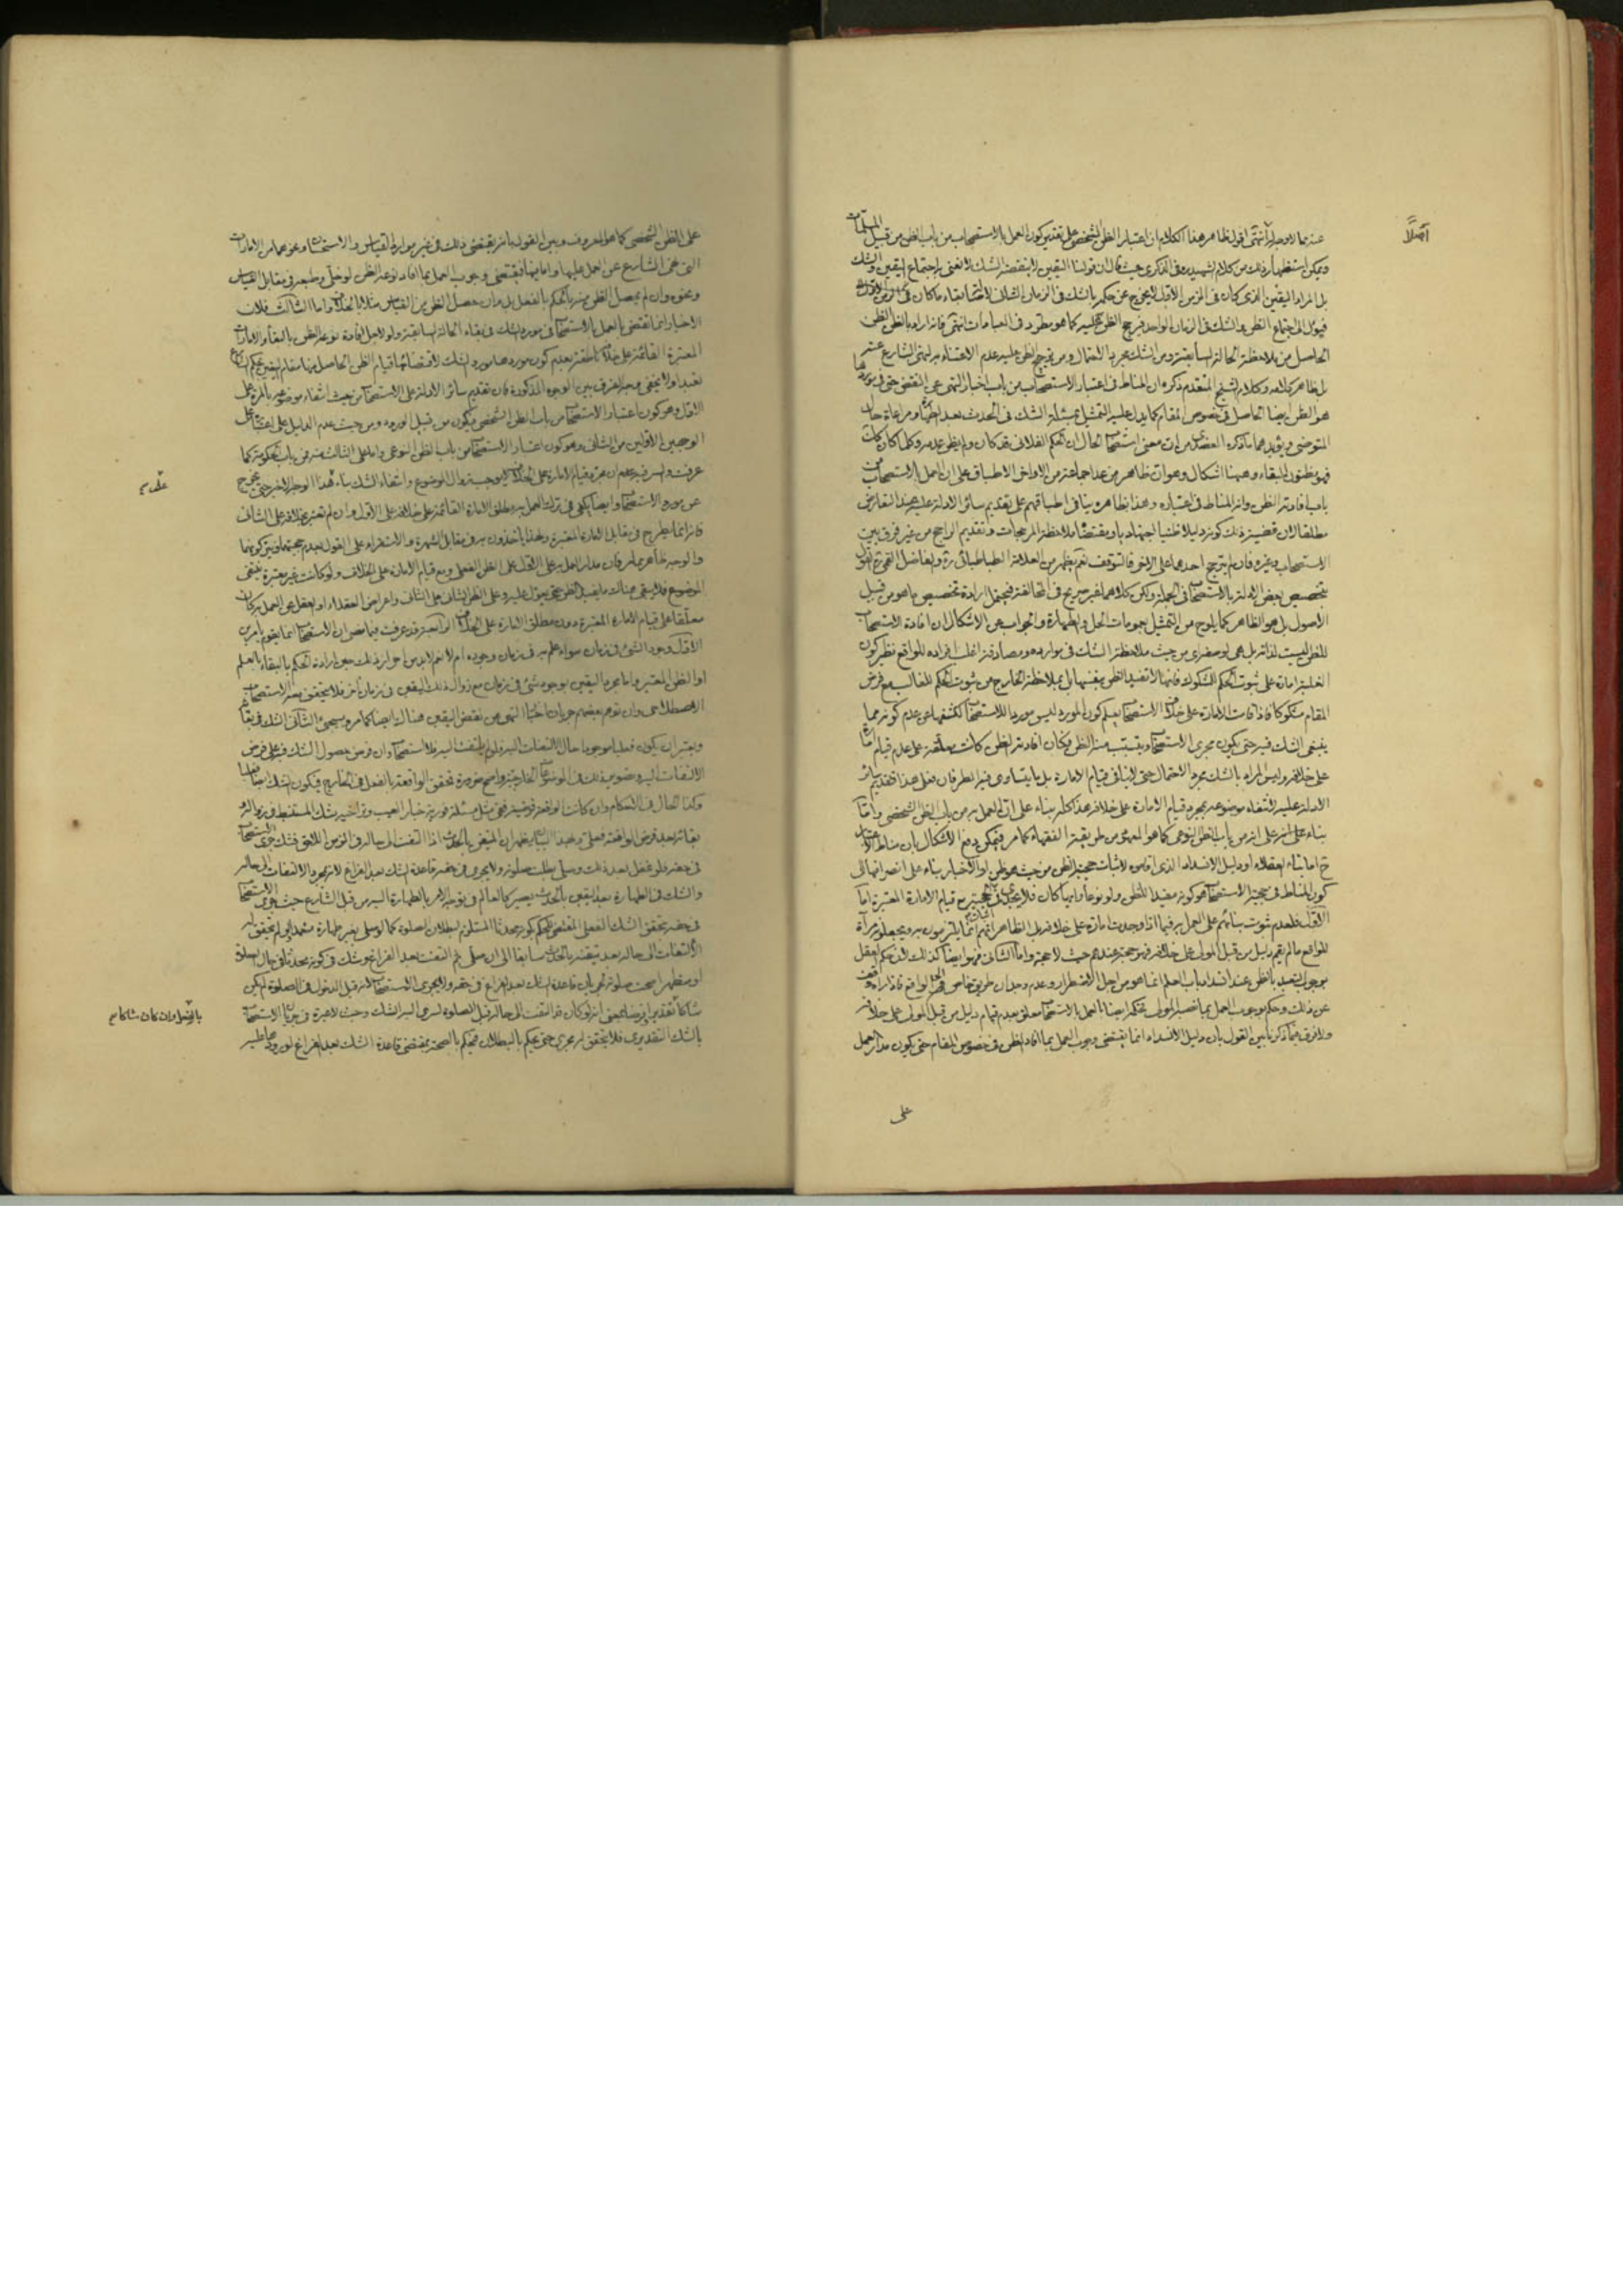 عنه مما لا وجه له انتهى اقول ظاهر هذا الكلام ان اعتبار الظن الشخصي على تقدير كون العمل بالاستصحاب من باب الظن من قبيل المسلمات
ويمكن استظهار ذلك من كلام الشهيد في الذكرى حيث قال ان قولنا اليقين لا ينقضه الشك لا نعني به اجتماع اليقين والشك
بل المراد اليقين الذي كان في الزمن الاول لا يخرج عن حكمه بالشك في الزمان الثاني لاصالة بقاء ما كان على ما كان
فيؤل الى اجتماع الظن والشك في الزمان الواحد فيرجح الظن عليه كما هو مطرد في العبادات انتهى فانه اراد بالظن الظن
الحاصل من ملاحظة الحالة السابقة ومن الشك مجرد الاحتمال ومن ترجيح الظن عليه عدم الاعتناء به لنهي الشارع عنه
بل ظاهر كلامه وكلام الشيخ المتقدم ذكره ان المناط في اعتبار الاستصحاب من باب اخبار النهي عن النقض حتى في موردها
هو الظن ايضا الحاصل في خصوص المقام كما يدل عليه التمثيل بمسئلة الشك في الحدث بعد الطهارة ومراعاة حال
المتوضي ويؤيدهما ما ذكره العضدي من ان معنى استصحاب الحال ان الحكم الفلاني قد كان ولم يظن عدمه وكلما كان كذلك
فهو مظنون البقاء وههنا اشكال وهو ان ظاهر من عدا جماعة من الاواخر الاطباق على ان العمل بالاستصحاب من
باب افادته الظن وانه المناط في اعتباره وهذا بظاهره ينافي اطباقهم على تقديم سائر الادلة عليه عند التعارض
مطلقا لان قضية ذلك كونه دليلا ظنيا اجتهاديا ومقتضاه ملاحظة المرجحات وتقديم الراجح من غير فرق بين
الاستصحاب وغيره فان لم يترجح احدهما على الآخر فالتوقف نعم يظهر من العلامة الطباطبائي ره والفاضل القمي ره القول
بتخصيص بعض الادلة بالاستصحاب في الجملة ولكن كلامهما غير صريح في المخالفة فيحتمل ارادة تخصيص ما هو من قبيل
الاصول بل هو الظاهر كما يلوح من التمثيل بعمومات الحل والطهارة والجواب عن الاشكال ان افادة الاستصحاب
للظن ليست لذاته بل هي لو سفرى من حيث ملاحظة الشك في موارده ومصادفة اغلب افراده للواقع نظير كون
الغلبة امارة على ثبوت الحكم للمشكوك فانها لا تفيد الظن بنفسها بل بملاحظة الخارج من ثبوت الحكم للغالب مع فرض
المقام مشكوكا فاذا قامت الامارة على خلاف الاستصحاب يعلم كون المورد ليس موردا للاستصحاب لكشفها عن عدم كونه مما
ينبغي الشك فيه حتى يكون مجرى الاستصحاب ويتسبب منه الظن فكان افادته الظن كانت معلقة على عدم قيام امارة
على خلافه وليس المراد بالشك مجرد الاحتمال حتى لا ينافي قيام الامارة بل ما يتساوى فيه الطرفان فعلى هذا فتقديم سائر
الادلة عليه لانتفاء موضوعه بمجرد قيام الامارة على خلافه هذا كله بناء على ان العمل به من باب الظن الشخصي واما
بناء على انه من باب الظن النوعي كما هو المعهود من طريقة الفقهاء كما مر فيمكن دفع الاشكال بان مناط الاعتبار
ح اما بناء العقلاء او دليل الانسداد الذي اقاموه لاثبات حجية الظن من حيث هو ظن او الاخبار بناء على انصرافها الى
كون المناط في حجية الاستصحاب هو كونه مفيدا للظن ولو نوعا وايما كان فلا يجدي في حجيته مع قيام الامارة المعتبرة اما
الاول فلعدم ثبوت بنائهم على العمل به فيما اذا وجدت امارة على خلافه بل الظاهر انهم انما يلتزمون به ويجعلونه مرآة
للواقع ما لم يقم دليل من قبل المولى على خلافه فهو حجة عندهم حيث لا حجة واما الثاني فهو ايضا كذلك لان حكم العقل
بوجوب التعبد بالظن عند انسداد باب العلم انما هو من اجل الاضطرار وعدم وجدان طريق خاص الى الواقع فاذا
عن ذلك وحكم بوجوب العمل بما نصبه المولى بحكم ايضا بالعمل بالاستصحاب معلق بعدم قيام دليل من قبل المولى على خلافه
ولا فرق فيما ذكرنا بين القول بان دليل الانسداد انما يقتضي وجوب العمل بما افاد الظن في خصوص المقام حتى يكون مدار العمل
على
اصلا
على الظن الشخصي كما هو المعروف وبين القول بانه يقتضي ذلك في غير موارد القياس والاستحسان ونحوهما من الامارات
التي نهى الشارع عن العمل عليها واما فيها فيقتضي وجوب العمل بما افاد نوعه الظن لو خلى وطبعه في مقابل القياس
ونحوه وان لم يحصل الظن منه بالحكم بالفعل بل وان حصل الظن من القياس مثلا بالخلاف واما الثالث فلان
الاخبار انما تقتضي العمل بالاستصحاب في مورد الشك في بقاء الحالة السابقة ولو لاجل افادة نوعه الظن بالبقاء والامارات
المعتبرة القائمة على خلاف الحالة السابقة بعدم كون موردها مورد الشك لاقتضائها قيام الظن الحاصل منها مقام اليقين بحكم الشارع
تعبدا ولا يخفى وجه الفرق بين الوجوه المذكورة فان تقديم سائر الادلة على الاستصحاب من حيث انتفاء موضوعه بالمرة على
الاول وهو كون اعتبار الاستصحاب من باب الظن الشخصي فيكون من قبيل الورود ومن حيث عدم الدليل على اعتباره على
الوجهين الاولين من الثاني وهو كون اعتبار الاستصحاب من باب الظن النوعي واما على الثالث منه فمن باب الحكومة كما
عرفت والسر فيه
عن مورد الاستصحاب وايضا يكفي في ترك العمل به مطلق الامارة القائمة على خلافه على الاول وان لم تعتبر بخلافه على الثاني
فانه انما يطرح في مقابل الامارة المعتبرة ولهذا يأخذون به في مقابل الشهرة والاستقراء على القول بعدم حجيتهما ويتركونهما
والوجه ظاهر مما مر فان مدار العمل به على الاول على الظن الفعلي ومع قيام الامارة على الخلاف ولو كانت غير معتبرة ينتفي
الموضوع فلا يبقى هناك ما يفيد الظن حتى يعول عليه وعلى الظن الشأني على الثاني واعراض العقلاء او العقل عن العمل به كان
معلقا على قيام الامارة المعتبرة دون مطلق الامارة على الخلاف
الاول وجود الشيء في زمان سواء علم به في زمان وجوده ام لا نعم لابد من احراز ذلك حين ارادة الحكم بالبقاء بالعلم
او الظن المعتبر واما مجرد اليقين بوجود شيء في زمان مع زوال ذلك اليقين في زمان آخر فلا يتحقق معه الاستصحاب
الاصطلاحي وان توهم بعضهم جريان اخبار النهي عن نقض اليقين هناك ايضا كما مر وسيجيء الثاني الشك في بقائه
ويعتبر ان يكون فعليا موجودا حال الالتفات اليه فلو لم يلتفت اليه فلا استصحاب وان فرض حصول الشك فيه على فرض
الالتفات اليه
وكذا الحال في الاحكام وان كانت الواقعة
بقائه بعد فرض الواقعة فعلي وبهذا البيان يظهر ان المتيقن بالحدث اذا التفت الى حاله في الزمن اللاحق فشك جرى الاستصحاب
في حقه فلو غفل بعد ذلك وصلى بطلت صلوته ولا يجري في حقه قاعدة الشك بعد الفراغ لانه بمجرد الالتفات الى حاله
والشك في الطهارة بعد اليقين بالحدث يصير كالعالم في توجه الامر بالطهارة اليه من قبل الشارع حيث جرى الاستصحاب
في حقه بتحقق الشك الفعلي المقتضي للحكم بكونه محدثا المستلزم لبطلان الصلوة كما لو صلى بغير طهارة متعمدا ولو لم يتحقق له
الالتفات الى حاله بعد تيقنه بالحدث سابقا الى ان صلى ثم التفت بعد الفراغ وشك في كونه محدثا في حال الصلوة
او متطهرا صحت صلوته لجريان قاعدة الشك بعد الفراغ في حقه ولا يجري الاستصحاب لانه قبل الدخول في الصلوة لم يكن
شاكا تقديرا وفرضا بمعنى انه لو كان قد التفت الى حاله قبل الصلوة لسرى اليه الشك وحيث لا عبرة في جريان الاستصحاب
بالشك التقديري فلا يتحقق له مجرى حتى يحكم بالبطلان فيحكم بالصحة بمقتضى قاعدة الشك بعد الفراغ لوروده
بالفعل وان كان شاكا م